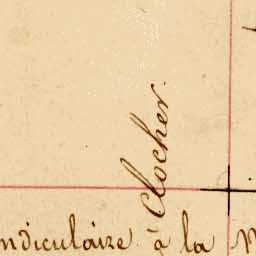 Clocher
ndiculaire à la